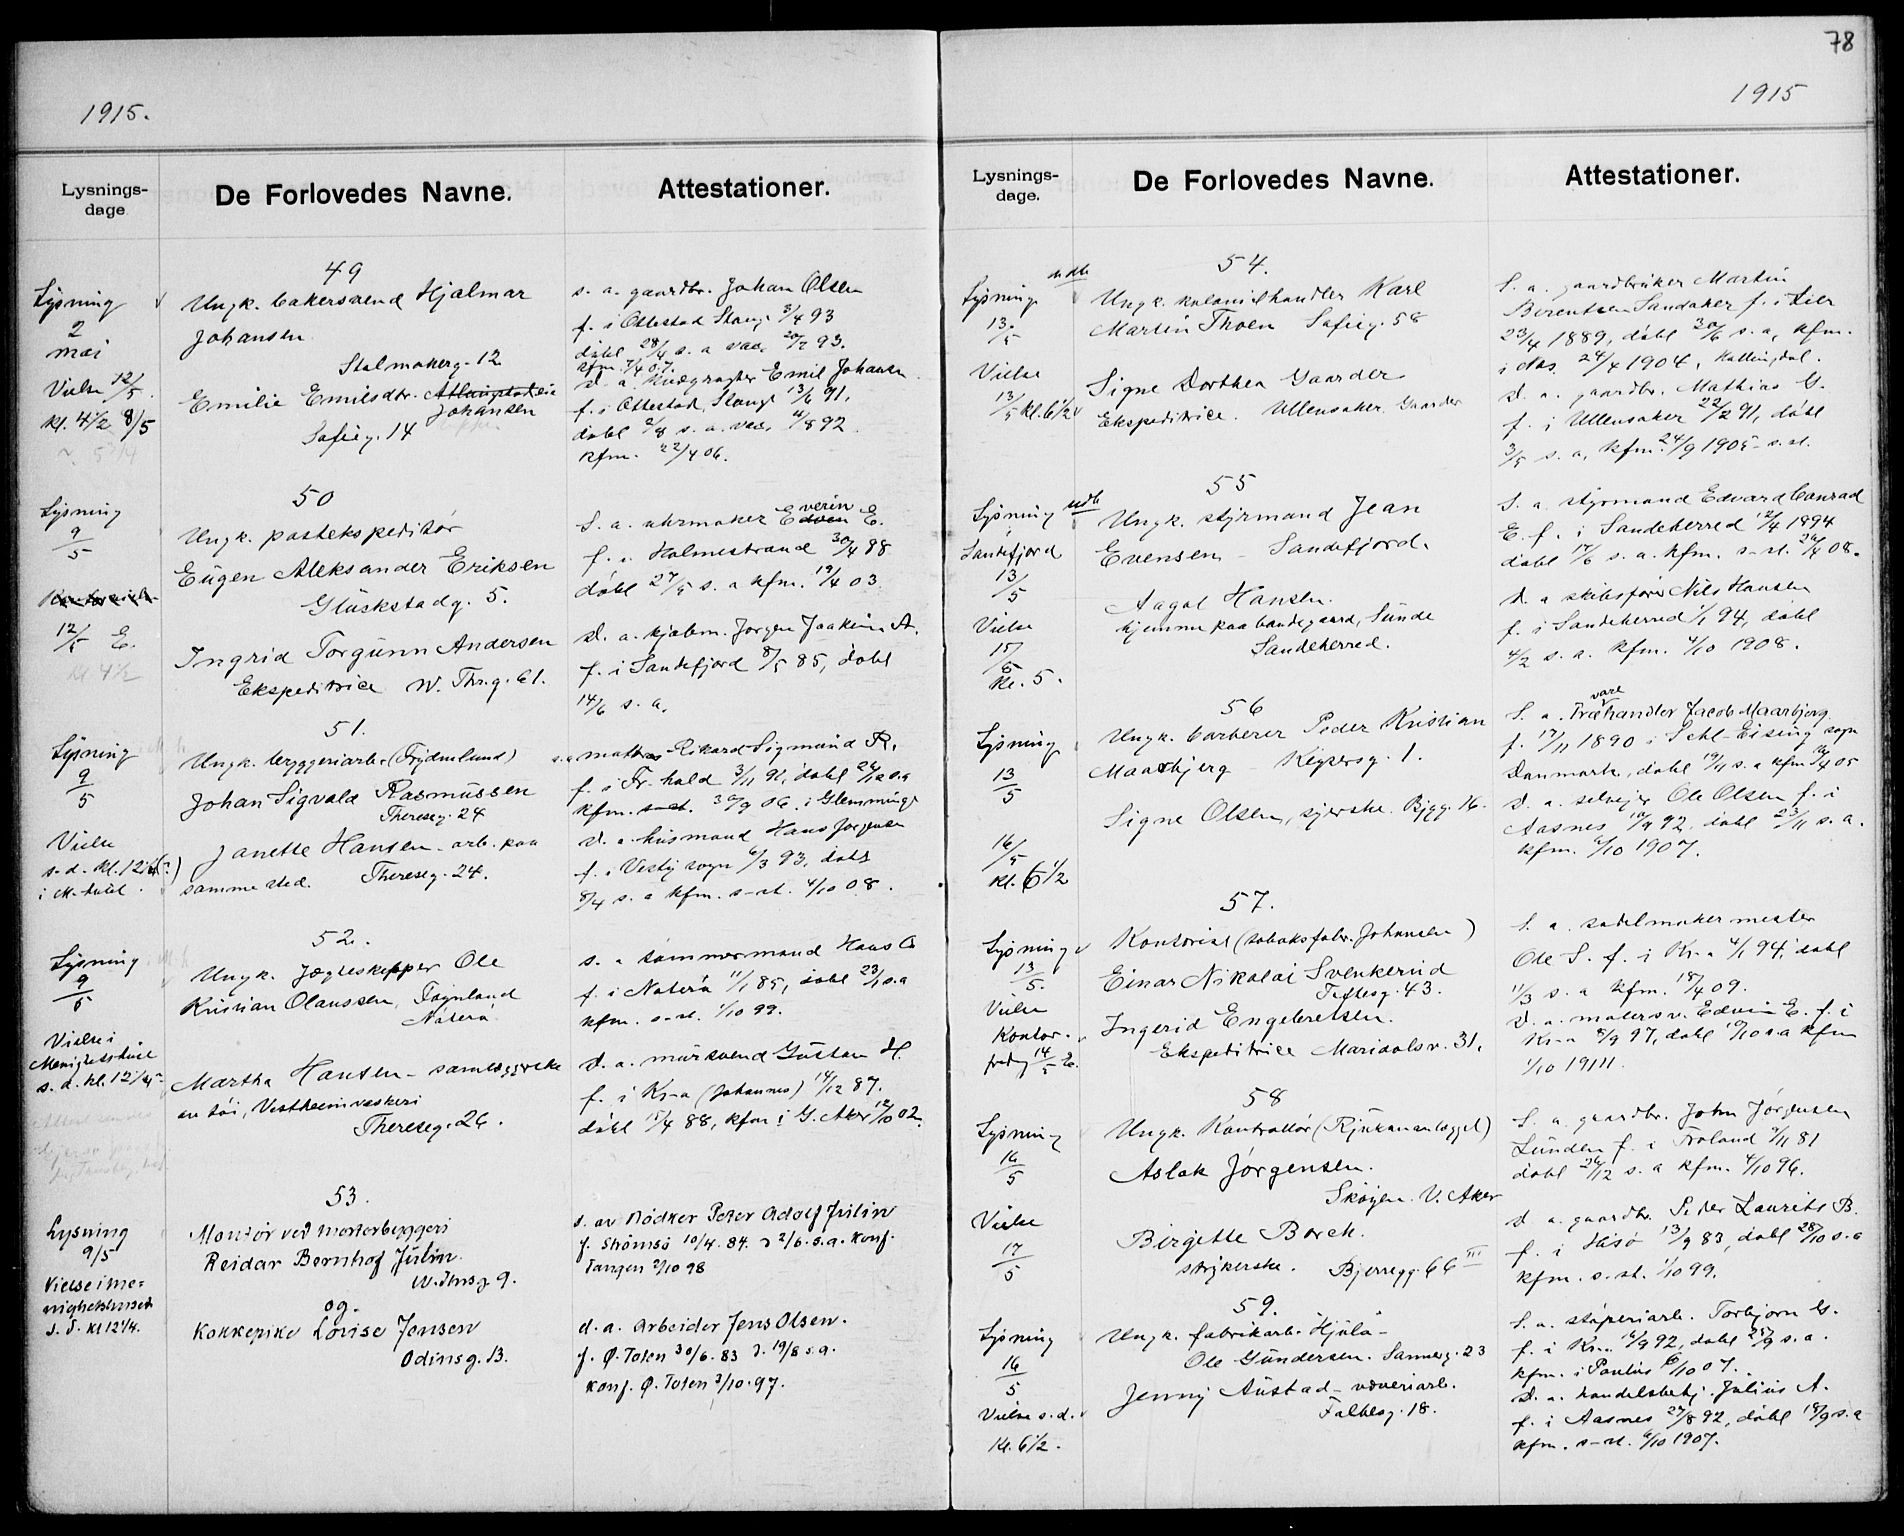 1915.
Lysnings-
dage
De Forlovedes Navne.
Attestationer.
49
Lysning
2
mai
Vielse 12/5
kl. 4 1/2 8/5
Ungk. bakersvend Hjalmar
Johansen
Stolmakerg. 12
Emilie Emilsdtr.
Johansen
Sofieg. 14
s. a. gaardbr. Johan Olsen
f. i Ottestad Stange 3/4 93
døbt 28/4 s. a vac.
kfm. 7/4 07.
d. a. Emil Johansen
f. i Ottestad, Stange 13/6 91,
døbt 2/8 s. a. vac. 4/8 92
kfm. 22/4 06.
50
Lysning
9
5
12/5 E.
kl 4 1/2
Ungk. postekspeditør
Eugen Aleksander Eriksen
Glückstadg. 5.
Ingrid Torgunn Andersen
Ekspeditrice W. Thr. g. 61.
S. a. uhrmaker Everin E.
f. i Holmestrand 30/4 88
døbt 27/5 s. a kfm. 19/4 03
D. a. kjøbm. Jørgen Joakim A.
f. i Sandefjord 8/5 85, døbt
14/6 s. a.
51.
Lysning
9
5
Vielse
s. d. kl. 12
i M.
Ungk. bryggeriarb. (Frydenlund)
Johan Sigvald Rasmussen
Thereseg. 24
Janette Hansen - arb. paa
samme sted. Thereseg. 24.
s. a. Rikard Sigmund R.
f. i Fr.hald 3/11 91, døbt 26/12 s. a
kfm. 30/9 06. i Glemminge
D. a. husmand Hans Jørgensen
f. i Vestby sogn 6/3 93, døbt
8/4 s. a kfm. s-st. 4/10 08.
52.
Lysning
9
5
Vielse i
Menighetshuset
s. d. kl. 12 1/4
Ungk. Jægteskipper Ole
Kristian Olaussen, Føynland
Nøterø
Martha Hansen - sammelæggerske
av tøi, Vestheim vaskeri
Thereseg. 26.
s. a tømmermand Hans O
f. i Nøterø 11/1 85, døbt 23/1 s. a
kfm. s-st. 1/10 99.
D. a. mursvend Gustav H.
f. i Kr-a (Johannes) 14/12 87.
døbt 15/4 88, kfm i G. Aker 12/10 02.
53.
Lysning
9/5
Vielse i me-
nighetshuset
s. d. kl 12 1/4.
Montør ved mortorbyggeri
Reidar Bernhof Julin.
W. Thrsg 9.
og.
Kokkepike Lovise Jensen
Odinsg. 13.
s. av Bødker Peter Adolf Julin
f. Strømsø 10/4. 84. d 2/6. s. a. konf.
Tangen 2/10 98
d. a. Arbeider Jens Olsen.
f. Ø. Toten 30/6. 83 d. 19/8 s. a.
konf. Ø. Toten 3/10. 97.
78
1915
Lysnings-
dage.
De Forlovedes Navne.
Attestationer.
54.
Lysning udb
13
5
Vielse
13
5 kl. 6 1/2
Ungk. kolonialhandler Karl
Martin Thoen Sofieg. 58
Signe Dorthea Gaarder
Ekspeditrice. Ullensaker. Gaarder
S. a. gaardbruker Martin
Berentsen Sandaker f. i Lier
23/4 1889, døbt 30/6 s. a, kfm.
i Nes 24/4 1904, Hallingdal.
D. a. gaardbr. Mathias G.
f. i Ullensaker 22/2 91, døbt
3/5 s. a, kfm. 24/9 1905 s. st.
55
Lysning udb
Sandefjord
13
5
Vielse
15
5
Kl. 5.
Ungk. styrmand Jean
Evensen - Sandefjord.
Aagot Hansen.
hjemme paa bondegaard, Sunde
Sandeherred.
S. a. styrmand Edvard Conrad
E. f. i Sandeherred 12/4 1894
døbt 17/6 s. a. kfm. s-st. 26/4 08.
D. a skibsfører Nils Hansen
f. i Sandeherred 1/1 94, døbt
4/2 s. a. kfm. 4/10 1908.
56
Lysning
13
5
16/5
Kl. 6 1/2
Ungk. barberer Peder Kristian
Maarbjerg - Keysersg. 1.
Signe Olsen, syerske. Bygg. 16.
vare
S. a. Træhandler Jacob Maarbjerg
f. 17/11 1890 i Sehl-Eising sogn
Danmark, døbt 19/11 s. a kfm 16/4 05
D. a. selveier Ole Olsen f. i
Aasnes 10/9 92, døbt 23/11 s. a.
kfm. 6/10 1907.
57.
Lysning
13
5.
Vielse
Kontor.
fredag 14/5 E.
Kontorist (tobaksfabr. Johansen)
Einar Nikolai Svenkerud
Toftesg. 43.
Ingerid Engebretsen.
Ekspeditrice Maridalsv. 31.
S. a. sadelmakermester
Ole S. f. i Kr-a 4/1 94, døbt
11/3 s. a kfm. 18/4 09.
D. a. malersv. Edwin E. f. i
Kr-a 8/9 97, døbt 10/10 s. a kfm
1/10 1911.
58
Lysning
16
5
Vielse
17
5
Ungk. Kontrollør (Rjukananlægget)
Aslak Jørgensen.
Skøyen. V. Aker
Birgette Borch.
strykerske. Bjerregg. 66 III
S. a. gaardbr. John Jørgensen
Lunden f. i Froland 9/11 81
døbt 26/12 s. a kfm. 4/10 96.
D. a. gaardbr. Peder Laurits B.
f. i Hisø 13/9 83, døbt 28/10 s. a
kfm. s. st. 1/10 99.
59.
Lysning
16
5
Vielse s. d.
Kl. 6 1/2.
Ungk. fabrikarb. Hjula -
Ole Gundersen. Sannerg. 23
Jenny Austad - væveriarb.
Falbesg. 18.
S. a. støperiarb. Torbjørn G.
f. i Kr-a 16/9 92, døbt 25/9 s. a.
kfm. i Paulus 6/10 07.
D. a. handelsbetj. Julius A.
f. i Aasnes 27/8 92, døbt 18/9 s. a
kfm. s-st. 6/10 1907.